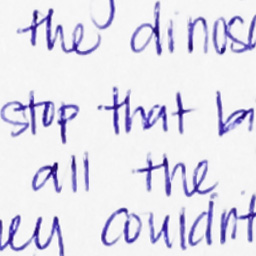 the dinos
stop that
all the
couldn't